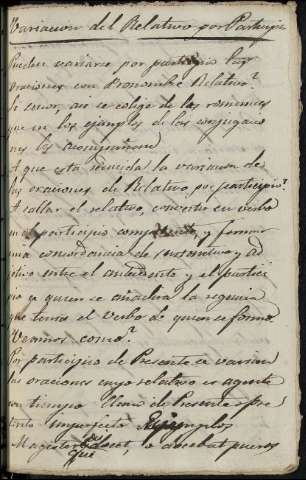 Variacion del Relativo por Participio
Pueden variarse por participio las
oraciones con Pronombre Relativo?
Si Señor, asi se colige de los romances
que en los ejemplos de las conjugacio
nes los acompañan
A que está reducida la variacion de
las oraciones de Relativo por participio?
A callar el relativo, convertir su verbo
en participio y formar
una concordancia de sustantivo y ad
jetivo entre el antecedente y el partici
pio a quien se añadira la
que tenia el Verbo de quien se forma
Veamos como?
Por participio de Presente se varian
las oraciones cuyo relativo es agente
con tiempo llano de Presente o pre
terito imperfecto Ejemplos
Magister qui docet, o docebat pueros